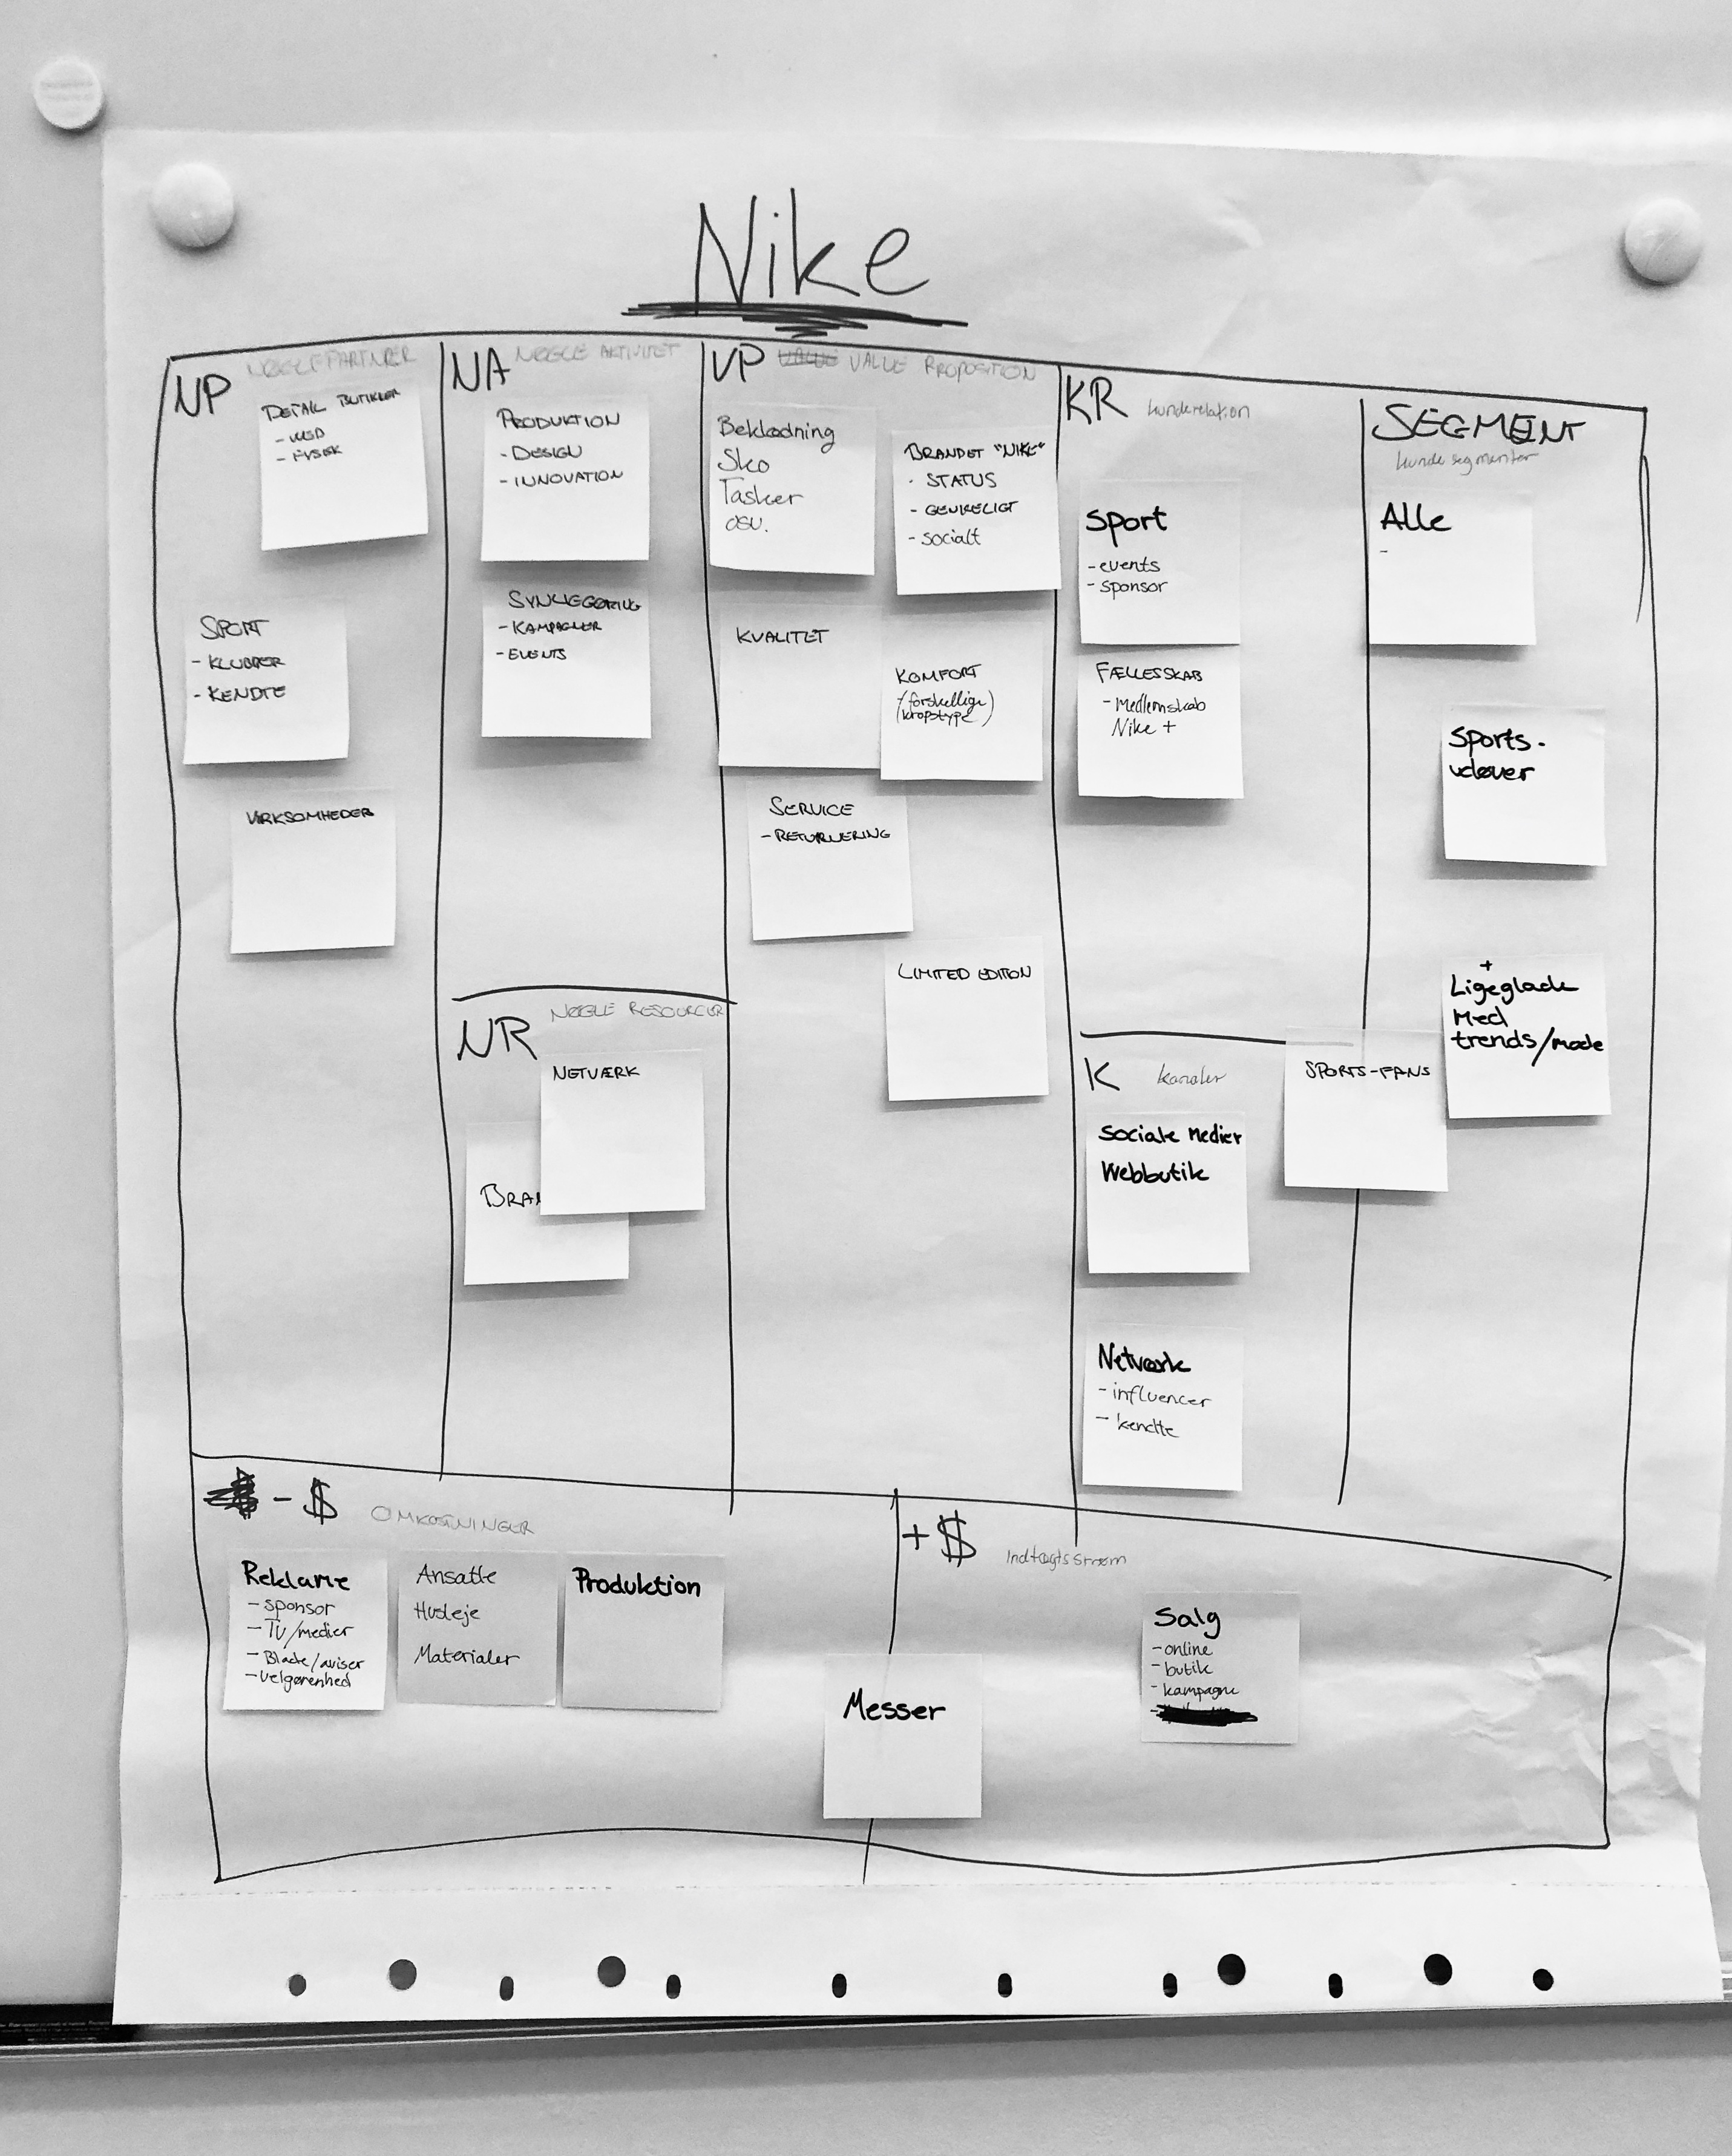 Nike
NP NØGLEPARTNER
DETAIL BUTIKKER
- WEB
- FYSISK
SPORT
- KLUBBER
- KENDTE
VIRKSOMHEDER
NA NØGLE AKTIVITET
PRODUKTION
- DESIGN
- INNOVATION
SYNLIGGØRING
- KAMPAGNER
- EVENTS
NR NØGLE RESOURCER
NETVÆRK
BRAN
VP VALUE PROPOSITION
Beklædning
Sko
Tasker
osv.
BRANDET "NIKE"
- STATUS
- GENKELIGT
- socialt
KVALITET
KOMFORT
- (forskellige
kropstype)
SERVICE
- RETURNERING
LIMITED EDITION
KR kunderelation
Sport
- events
- sponsor
FÆLLESSKAB
- Medlemskab
Nike +
K kanaler
Sociale Medier
Webbutik
Netværk
- influencer
- kendte
SEGMENT
kunde segmenter
Alle
-
Sports-
udøver
+
Ligeglade
Med
trends/mode
SPORTS-FANS
- $ OMKOSTNINGER
Reklame
- sponsor
- TV/medier
- Blade/aviser
- velgørenhed
Ansatte
Husleje
Materialer
Produktion
Messer
+ $ Indtægtsstrøm
Salg
- online
- butik
- kampagne